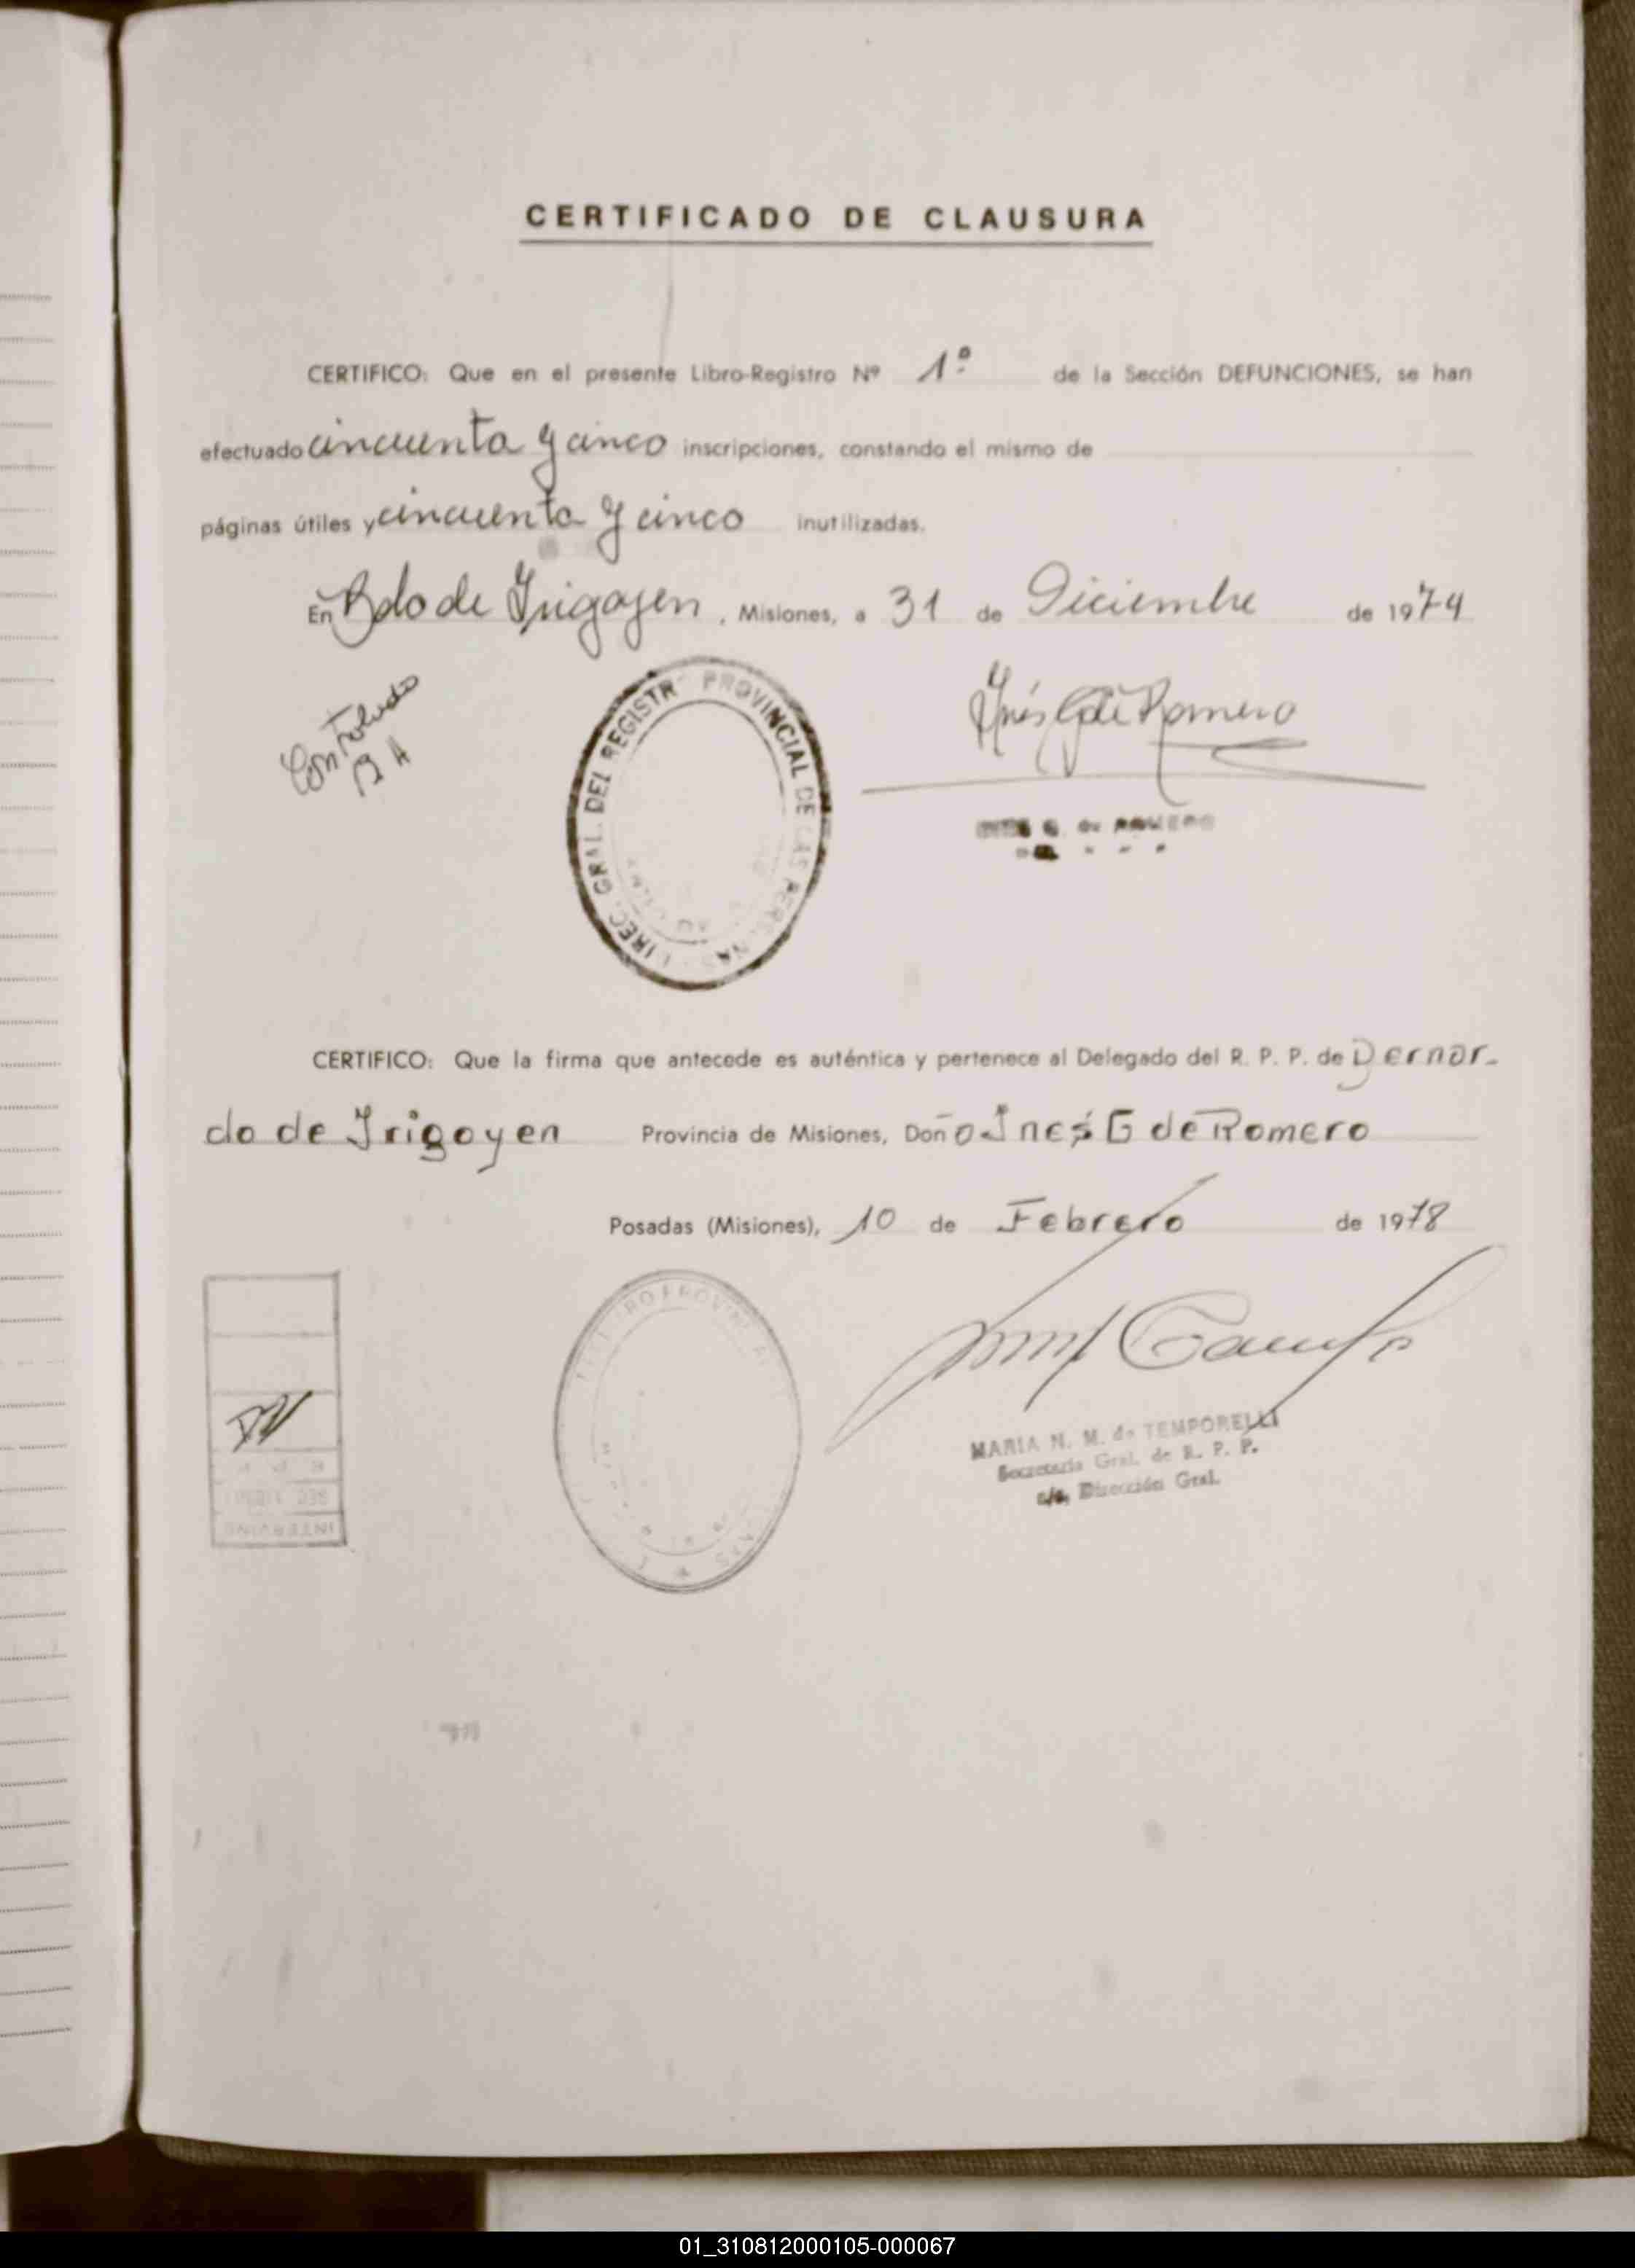 CERTIFICADO DE CLAUSURA
CERTIFICO: Que en el presente Libro-Registro Nº 1º de la Sección DEFUNCIONES, se han
efectuado cincuenta y cinco inscripciones, constando el mismo de
páginas útiles y cincuenta y cinco inutilizadas.
En Bdo de Irigoyen, Misiones, a 31 de Diciembre de 1974
Controlado
DIREC. GRAL. DEL REGISTR PROVINCIAL DE LAS PERS NAS
Inés G de Romero
G. de ROMERO
CERTIFICO: Que la firma que antecede es auténtica y pertenece al Delegado del R. P. P. de Bernar-
do de Irigoyen Provincia de Misiones, Doña Inés G de Romero
Posadas (Misiones), 10 de Febrero de 1978
MARIA N. M. de TEMPORELLI
Secretaria Gral. de R. P. P.
a/c. Dirección Gral.
01_310812000105-000067